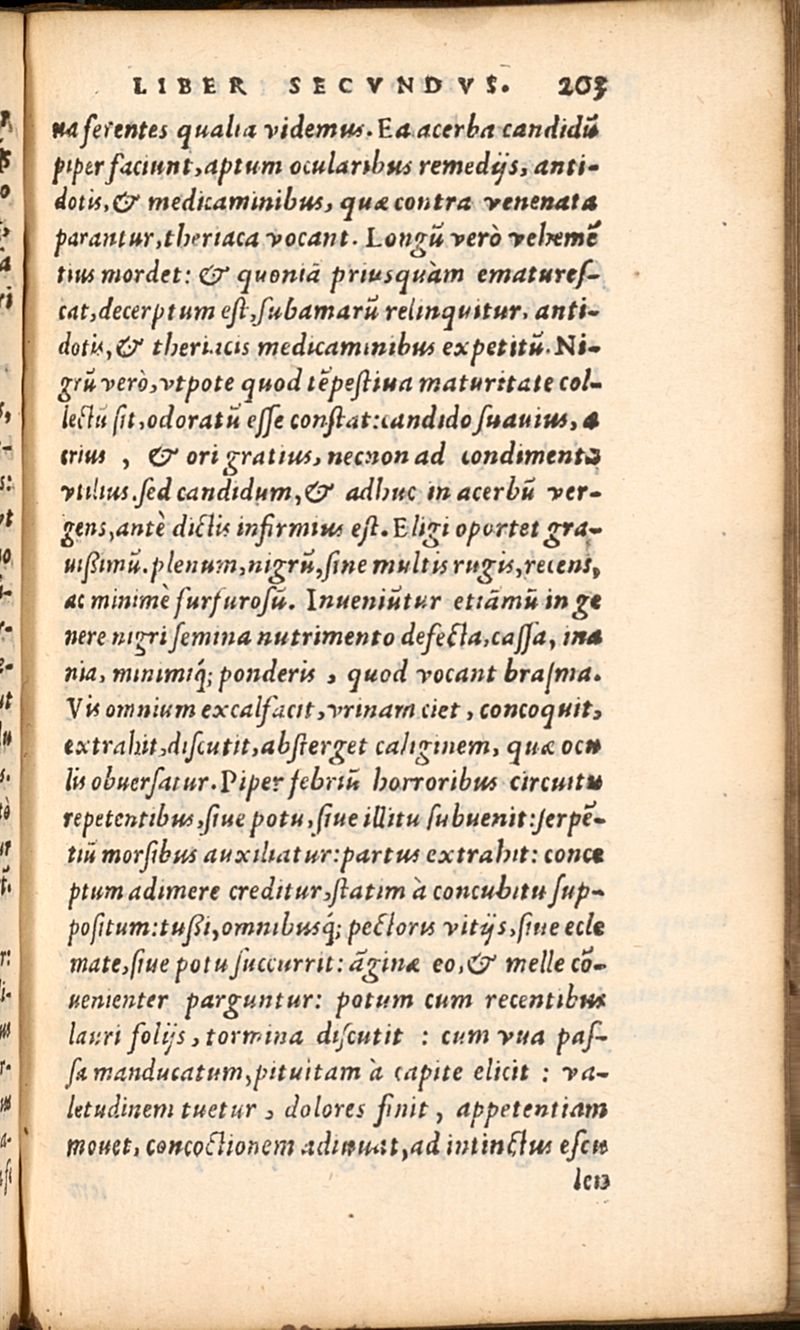 LIBER SECVNDVS. 203
na ferentes qualia videmus. Ea acerba candidū
piper faciunt, aptum ocularibus remedijs, anti-
dotis, & medicaminibus, quæ contra venenata
parantur, theriaca vocant. Longū verò vehemē
tius mordet: & quoniā priusquàm ematuref-
cat, decerptum eſt, ſubamarū relinquitur, anti-
dotis, & theriacis medicaminibus expetitū. Ni-
grū verò, vtpote quod tēpeſtiua maturitate col-
lectū ſit, odoratū eſſe conſtat: candido ſuauius, a
crius , & ori gratius, necnon ad condimenta
vtilius. ſed candidum, & adhuc in acerbū ver-
gens, antè dictis infirmius eſt. Eligi oportet gra-
uißimū. plenum, nigrū, ſine multis rugis, recens,
ac minimè furfuroſū. Inueniūtur etiāmū in ge
nere nigri ſemina nutrimento defecta, caſſa, ina
nia, minimiq́; ponderis , quod vocant braſma.
Vis omnium excalfacit, vrinam ciet , concoquit,
extrahit, diſcutit, abſterget caliginem, quæ ocu
lis obuerſatur. Piper febriū horroribus circuitu
repetentibus, ſiue potu, ſiue illitu ſubuenit: ſerpē-
tiū morſibus auxiliatur: partus extrahit: conce
ptum adimere creditur, ſtatim à concubitu ſup-
poſitum: tußi, omnibusq́; pectoris vitijs, ſiue ecle
mate, ſiue potu ſuccurrit: āginæ eo, & melle cō-
uenienter parguntur: potum cum recentibus
lauri folijs , tormina diſcutit : cum vua paſ-
ſa manducatum, pituitam à capite elicit : va-
letudinem tuetur , dolores finit , appetentiam
mouet, concoctionem adiuuat, ad intinctus eſcu
len